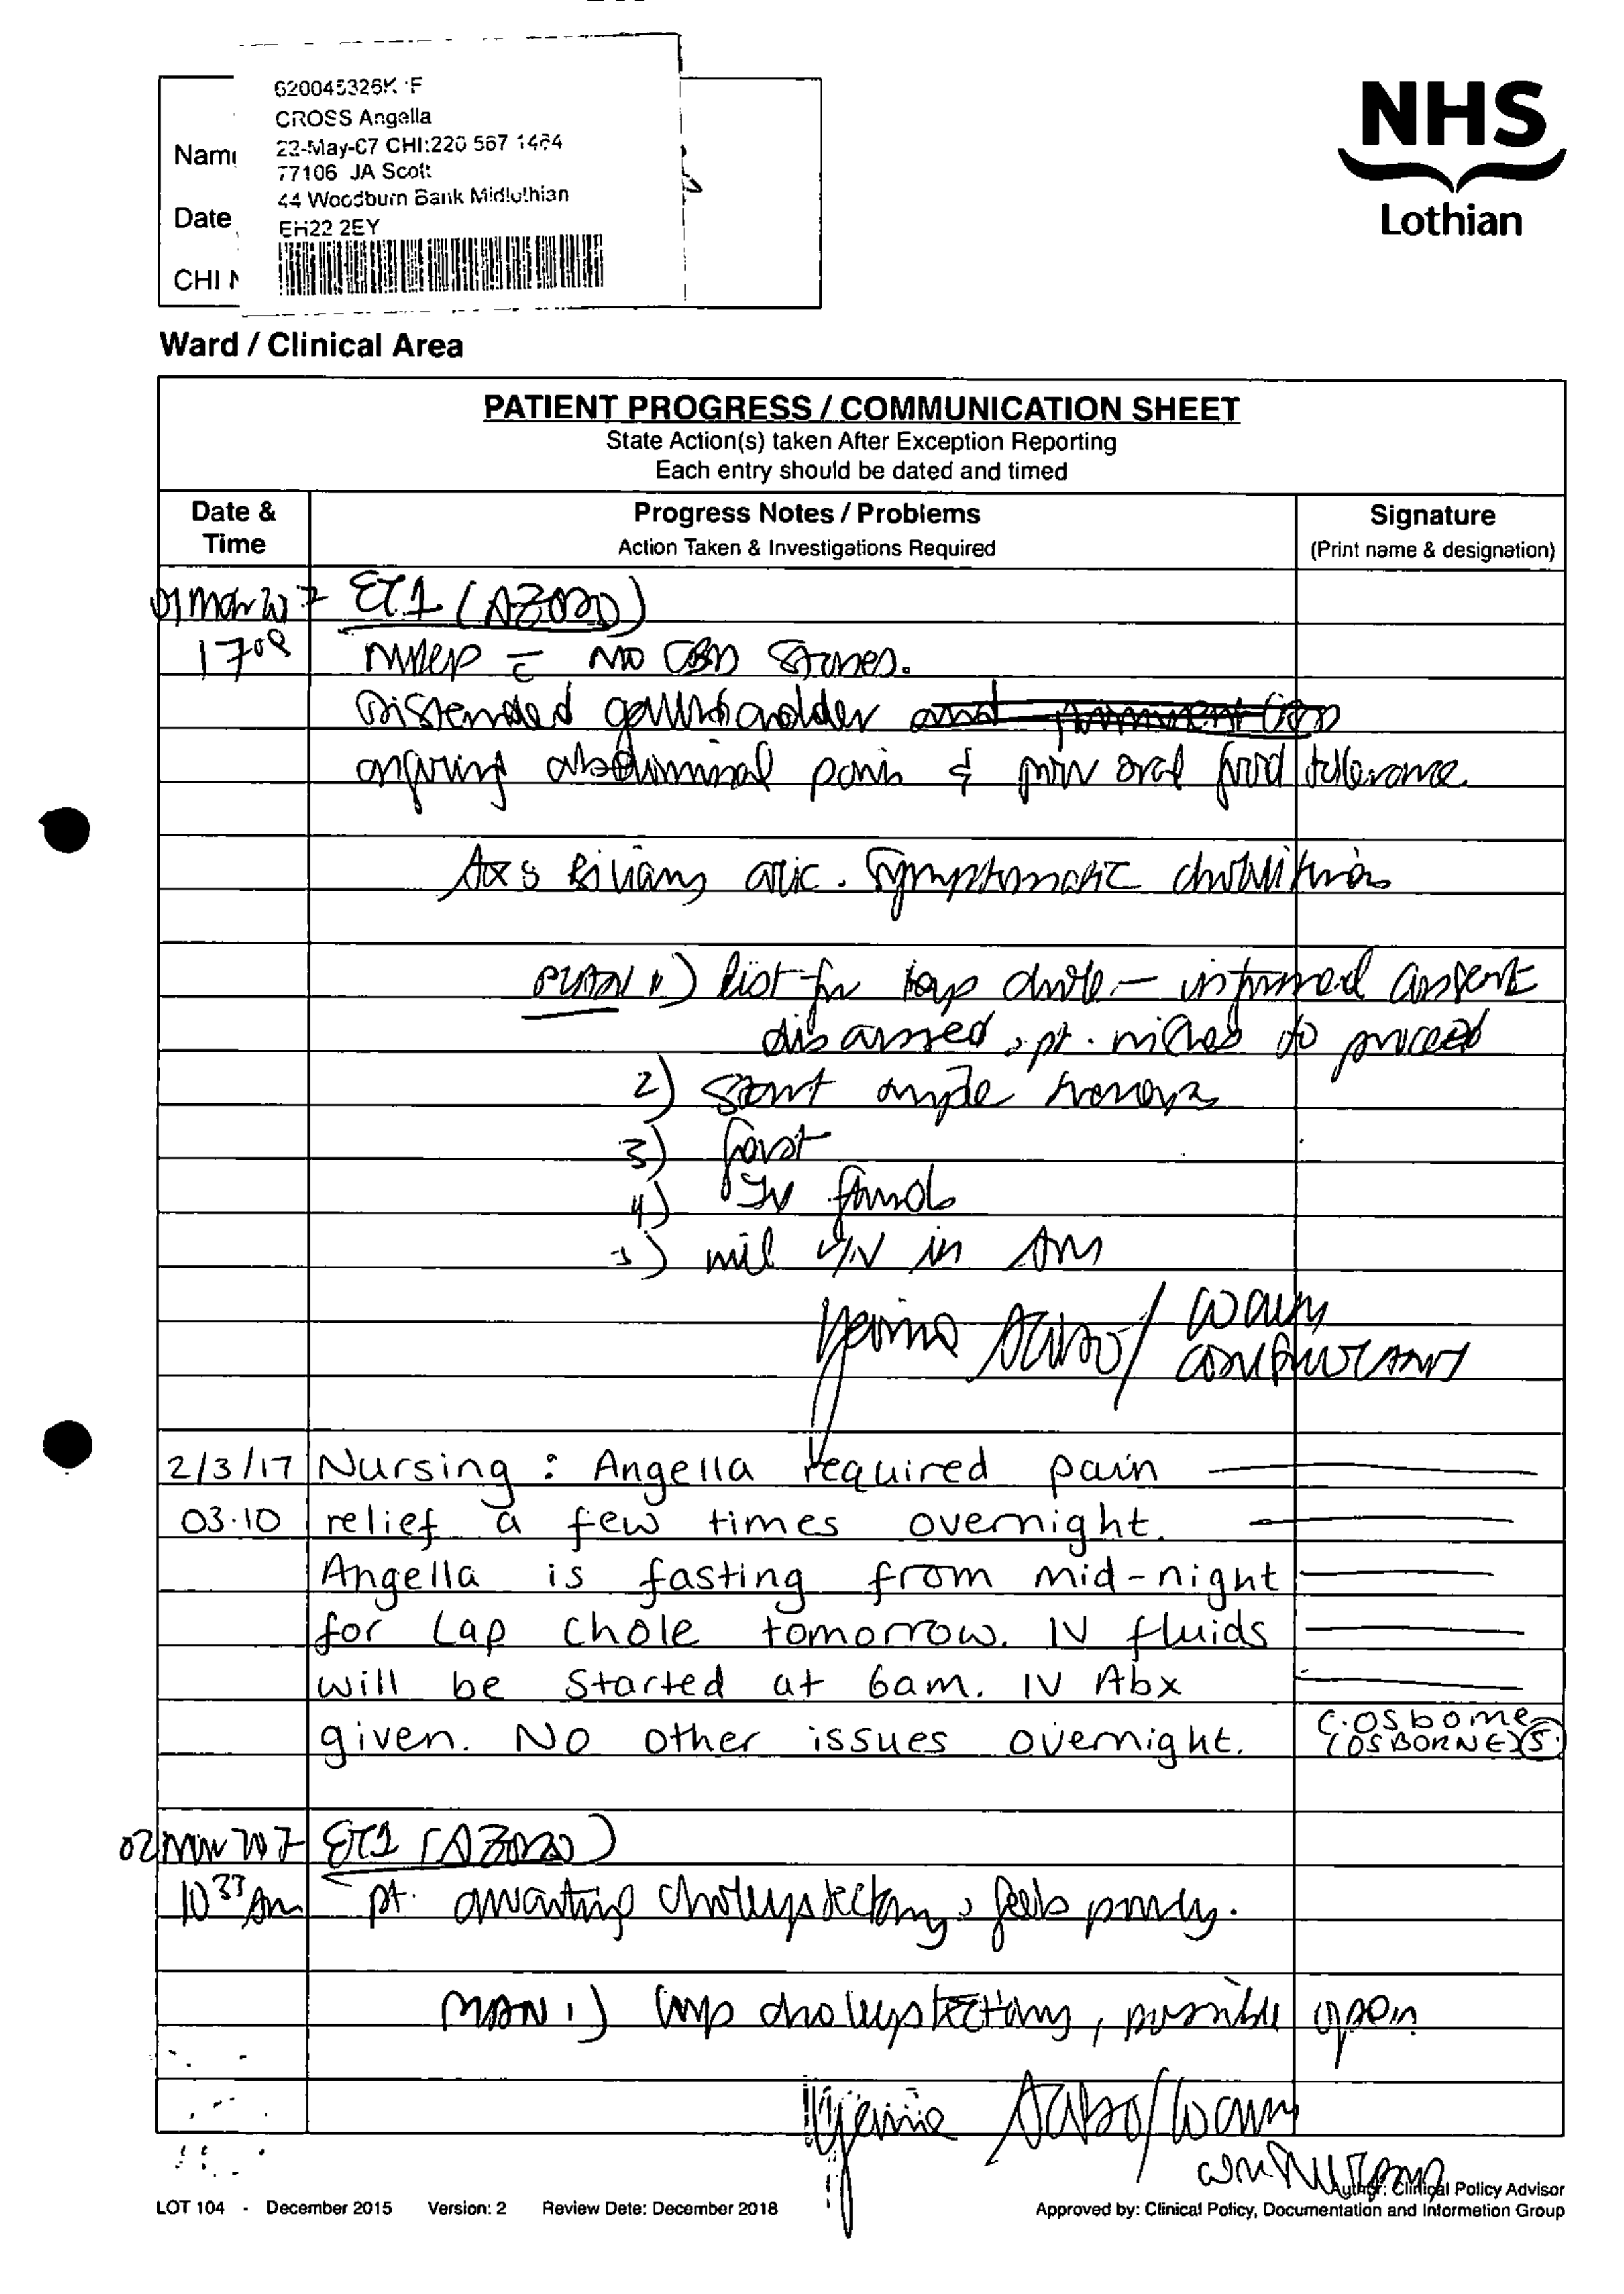 620045326K F
CROSS Angella
22-May-67 CHI:220 567 1464
77106 JA Scott
44 Woodburn Bank Midlothian
EH22 2EY
Nam
Date
CHI N
NHS
Lothian
Ward / Clinical Area
PATIENT PROGRESS / COMMUNICATION SHEET
State Action(s) taken After Exception Reporting
Each entry should be dated and timed
Date & Time
Progress Notes / Problems
Action Taken & Investigations Required
Signature
(Print name & designation)
01 Mar 2017 ET1 (AZ020)
17:08 MRCP = no CBD stones.
Distended gallbladder and
ongoing abdominal pain & poor oral food tolerance
biliary colic. Symptomatic cholelithiasis
PLAN 1) list for lap chole - informed consent
discussed, pt. wishes to proceed
2) Start
3) fast
4) IV fluids
5) will r/v in AM
consultant
2/3/17 Nursing : Angella required pain
03.10 relief a few times overnight.
Angella is fasting from mid-night
for Lap Chole tomorrow. IV fluids
will be started at 6am. IV Abx
given. No other issues overnight.
C. Osborne
(OSBORNE)
02 Mar 2017 ET1 (AZ020)
10 33 Am pt. awaiting cholecystectomy, feels poorly.
PLAN 1) Lap cholecystectomy, possible open
consultant
LOT 104 - December 2015 Version: 2 Review Date: December 2018
Author: Clinical Policy Advisor
Approved by: Clinical Policy, Documentation and Information Group